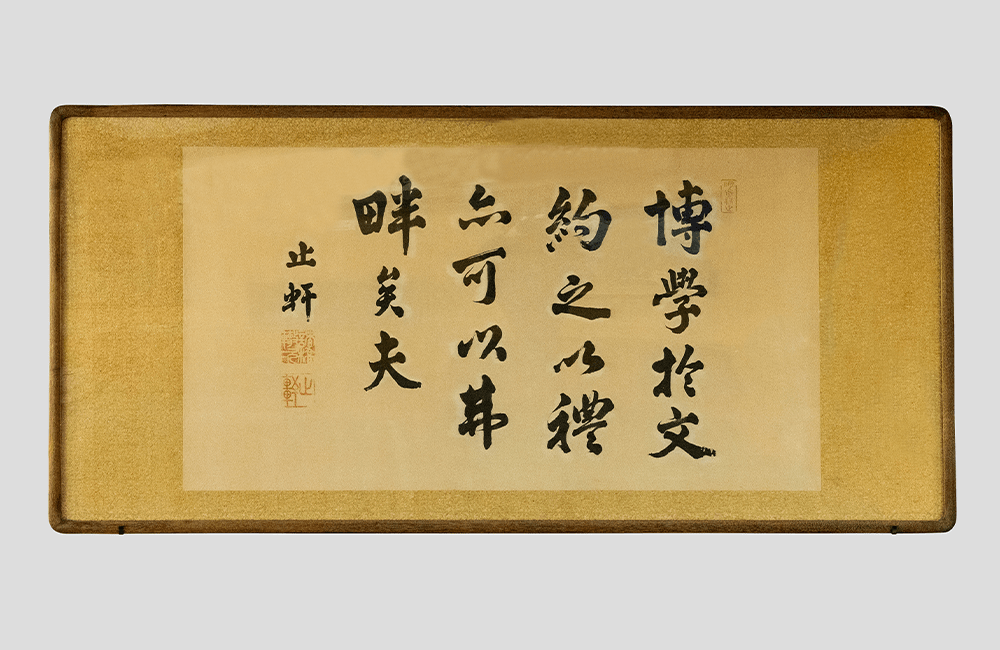 博學於文
約之以禮
亦可以弗
畔矣夫
止軒